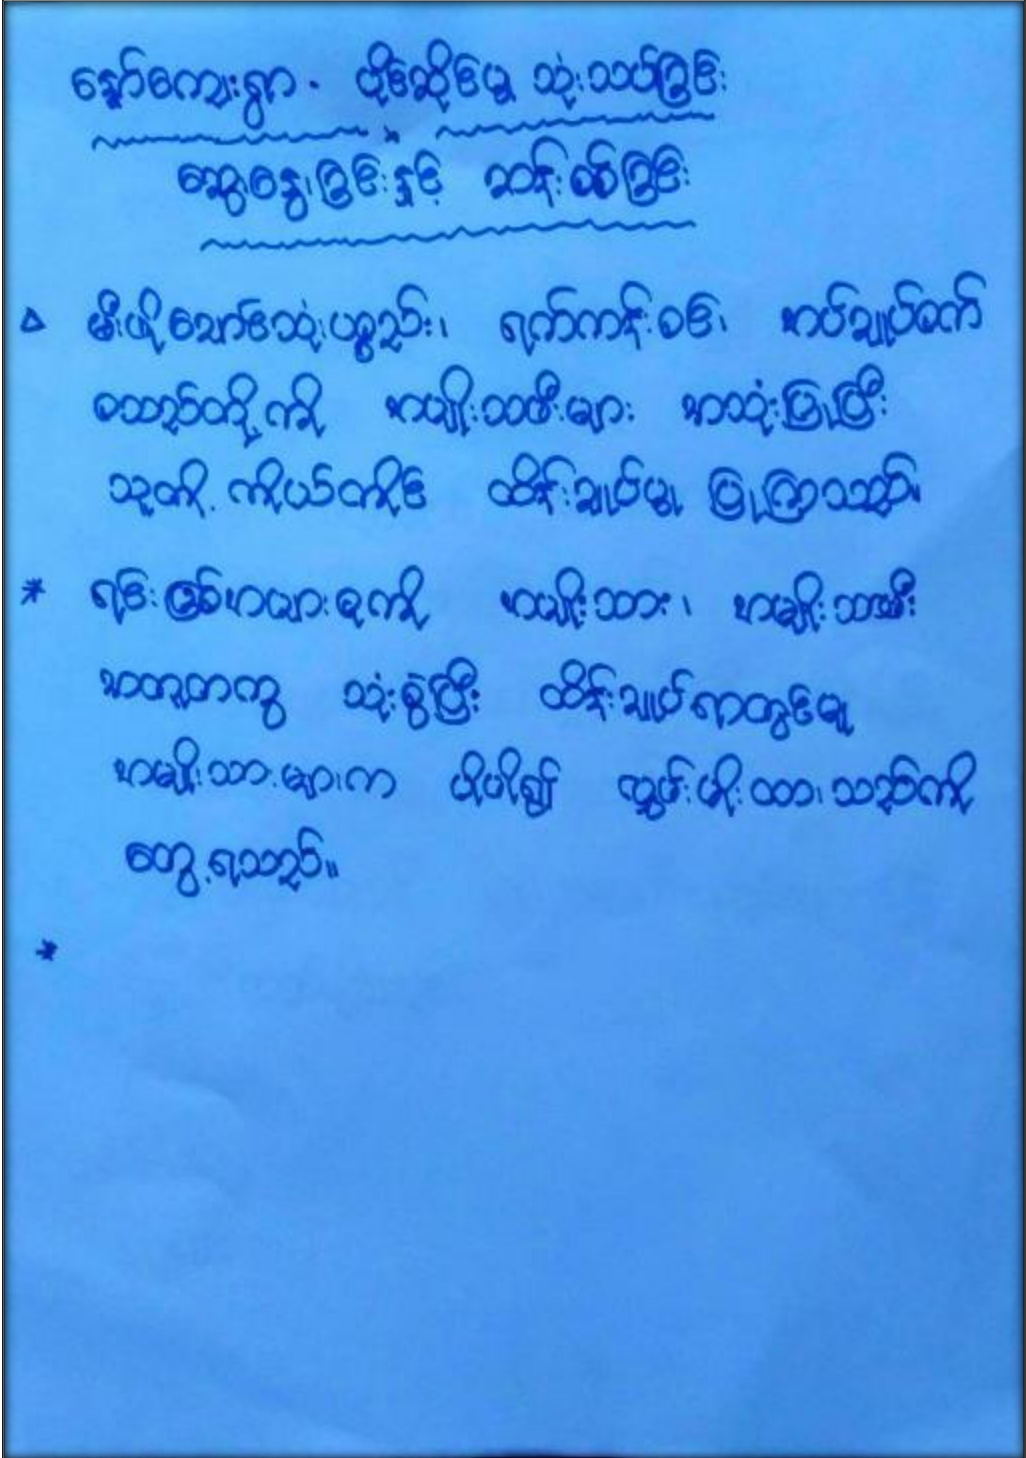 နော်ကျေးရွာ - ပိုင်ဆိုင်မှု သုံးသပ်ခြင်း
ဆွေးနွေးခြင်းနှင့် ဆန်းစစ်ခြင်း
မီးဖိုချောင်သုံးပစ္စည်း၊ ရက်ကန်းစင်၊ အပ်ချုပ်စက်
စသည်တို့ကို အမျိုးသမီးများ အသုံးပြုပြီး
သူတို့ ကိုယ်တိုင် ထိန်းချုပ်မှု ပြုကြသည်။
* ရင်းမြစ်အများစုကို အမျိုးသား၊ အမျိုးသမီး
အတူတကွ သုံးစွဲပြီး ထိန်းချုပ်ရာတွင်မူ
အမျိုးသားများက ပိုမို၍ လွှမ်းမိုးထားသည်ကို
တွေ့ရသည်။
*